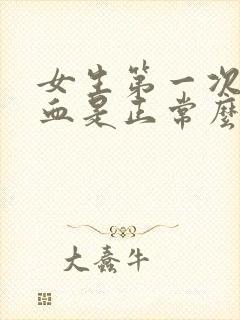 女生第一次
血是正常麼
大蠢牛